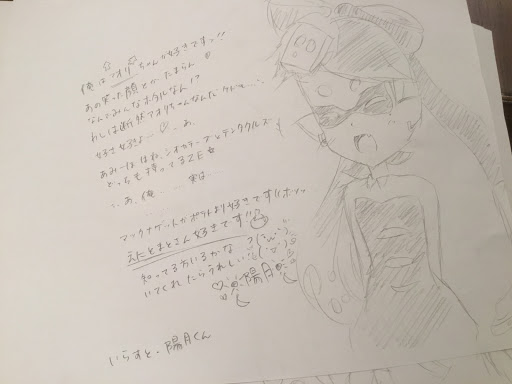 俺はアオリちゃんが好きですっ!!
あの笑った顔とかたまらん
なんでみんなホタルなん!?
わしは断然アオリちゃんなんだケド…
好き好きよ…♡ あ、
あみーぼはね、シオカラーズとテンタクルズ
どっちも持ってるZE☆
…あ、俺……実は…
マックナゲットかポテトより好きです!!ホァッ
えにとまとさん好きです!!
知ってる方いるかな?
いてくれたらうれしい
陽月
いらすと・陽月くん